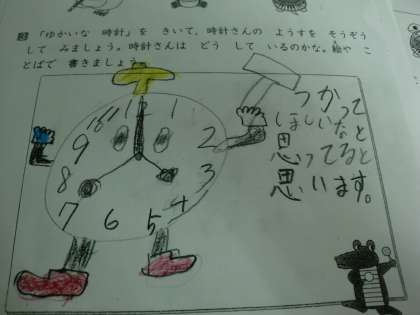 「ゆかいな 時計」を きいて、時計さんの ようすを そうぞう
して みましょう。時計さんは どう して いるのかな。絵や こ
とばで 書きましょう。
つかって
ほしいなと
思ってると
思います。
1
2
3
4
5
6
7
8
9